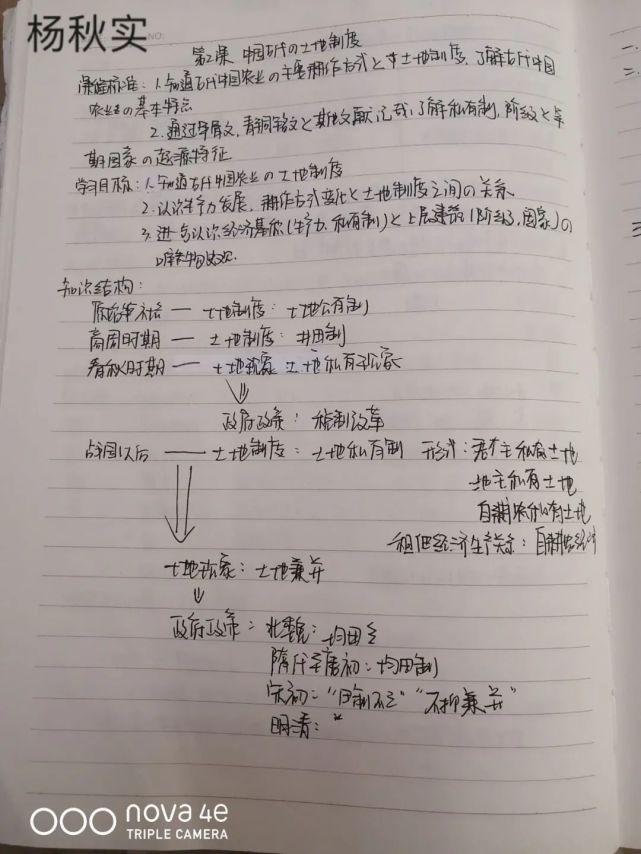 杨秋实
NO:
第2课 中国古代の土地制度
课程标准：1.知道古代中国农业の主要耕作方式と土地制度，了解古代中国
农业の基本特点
2.通过甲骨文，青铜铭文と其他文献记载，了解私有制，阶级と早
期国家の起源特征
学习目标：1.知道古代中国农业の土地制度
2.认识生产力发展，耕作方式变化と土地制度之间の关系
3.进步认识经济基础（生产力，私有制）と上层建筑（阶级，国家）の
唯物史观
知识结构：
原始社会 — 土地制度：土地公有制
商周时期 — 土地制度：井田制
春秋时期 — 土地现象 土地私有现象
政府政策：税制改革
战国以后 — 土地制度：土地私有制 形式：君主私有土地
地主私有土地
自耕农私有土地
租佃经济生产关系：自耕农经济
土地现象：土地兼并
政府政策：北魏：均田令
隋代至唐初：均田制
宋初："田制不立" "不抑兼并"
明清："
nova 4e
TRIPLE CAMERA